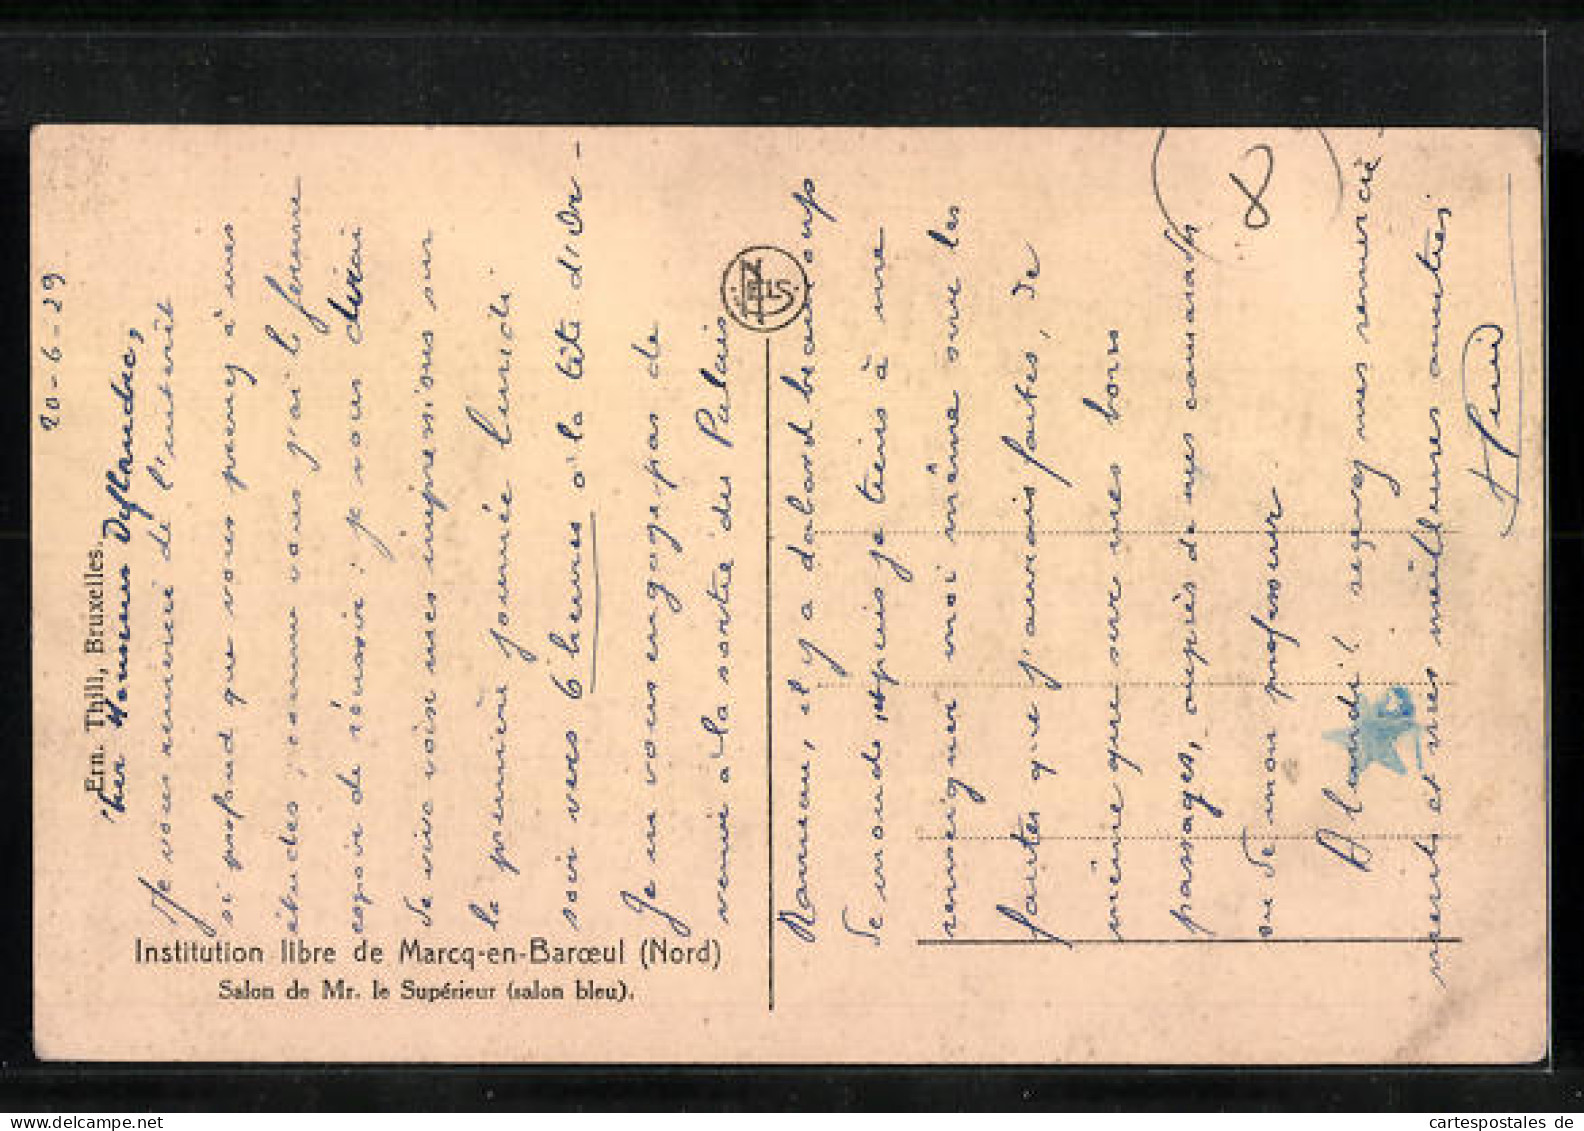 20-6-29
Ern. Thill, Bruxelles.
Cher Monsieur Deflandre,
Je vous remercie de l'intérêt
si profond que vous prenez à mes
études; comme vous j'ai le ferme
espoir de réussir: je vous dirai
de vive voix mes impressions sur
la première journée lundi
soir vers 6 heures à la tête d'Or-
Je ne vous engage pas de
venir à la sortie des Palais
Rameau, il y a d'abord beaucoup
de monde, et puis je tiens à me
renseigner moi même sur les
fautes que j'aurais faites, de
même que sur mes bons
passages, auprès de mes camarades
ou de mon professeur.
A lundi! recevez mes remercie-
ments et mes meilleures amitiés
NELS
Institution libre de Marcq-en-Barœul (Nord)
Salon de Mr. le Supérieur (salon bleu).
cartespostales de